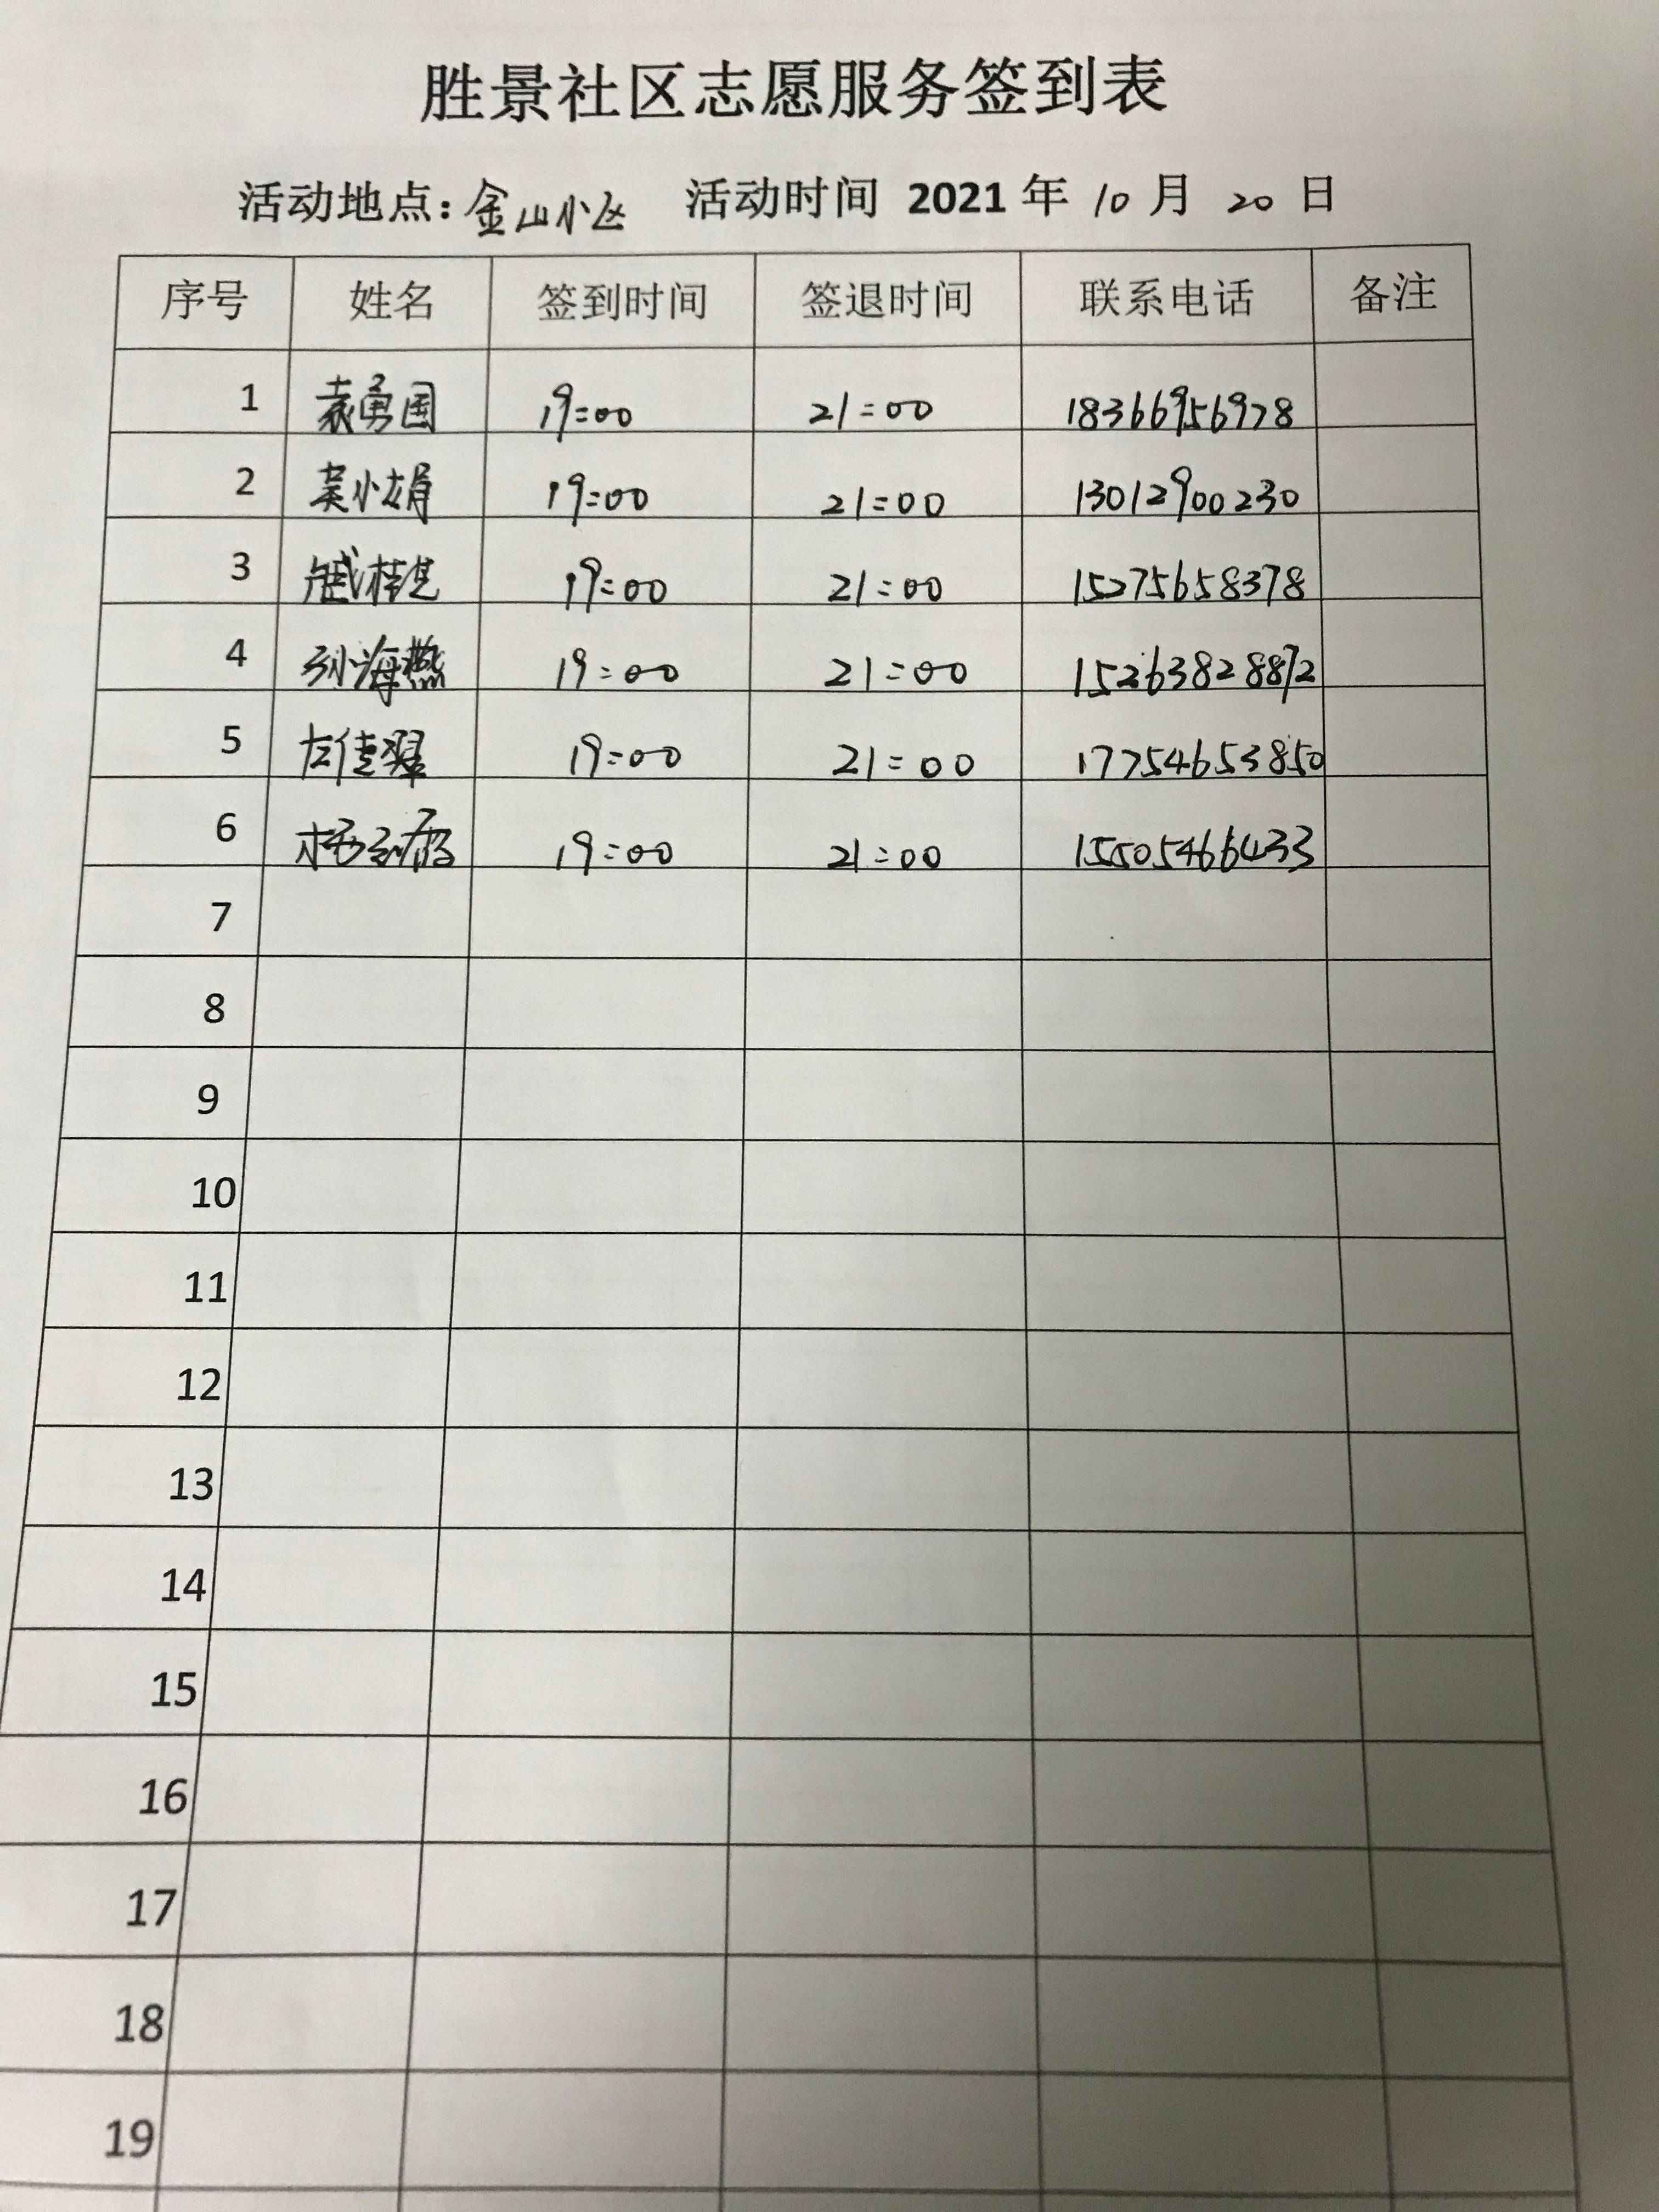 胜景社区志愿服务签到表
活动地点:金山小区 活动时间 2021 年 10 月 20 日
序号 姓名 签到时间 签退时间 联系电话 备注
1 袁勇国 19:00 21:00 18366956978
2 吴小娟 19:00 21:00 13012900230
3 19:00 21:00 15275658378
4 孙海燕 19:00 21:00 15263828872
5 左佳翠 19:00 21:00 17754653850
6 19:00 21:00 15505466433
7
8
9
10
11
12
13
14
15
16
17
18
19